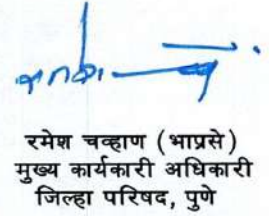 रमेश चव्हाण (भाप्रसे)
मुख्य कार्यकारी अधिकारी
जिल्हा परिषद, पुणे